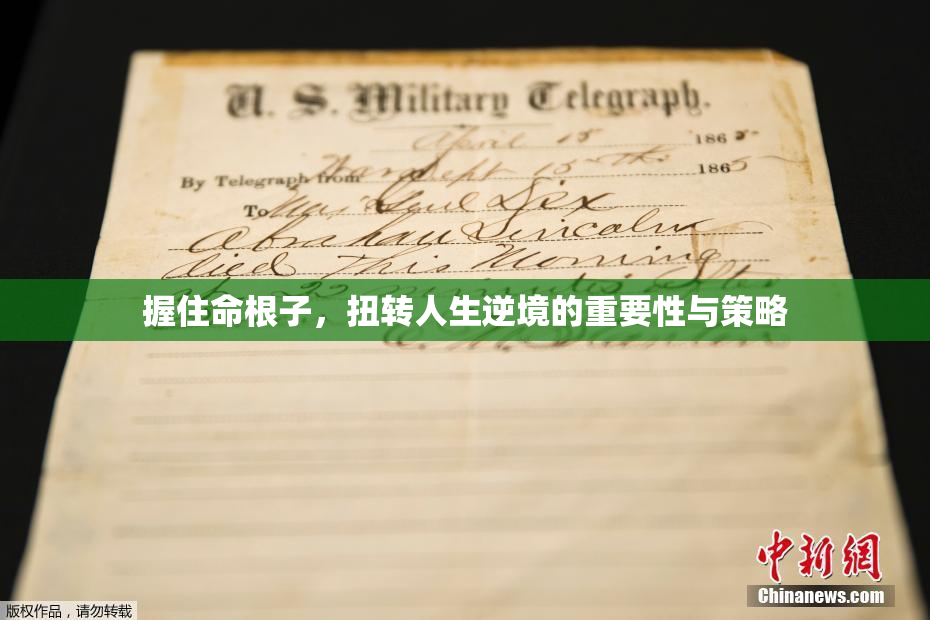 U. S. Military Telegraph.
April 15 1865
By Telegraph from War Dept 15th 1865
To Maj Genl Dix
Abraham Lincoln
died This Morning
22 minutes after
握住命根子，扭转人生逆境的重要性与策略
E. M. Stanton
中新网
Chinanews.com
版权作品，请勿转载